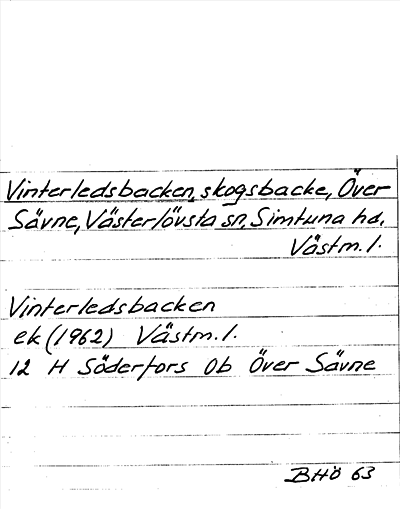 Vinterledsbacken, skogsbacke, Över
Sävne, Västerlövsta sn, Simtuna hd,
Västm. l.
Vinterledsbacken
ek (1962) Västm. l.
12 H Söderfors Ob Över Sävne
BHÖ 63